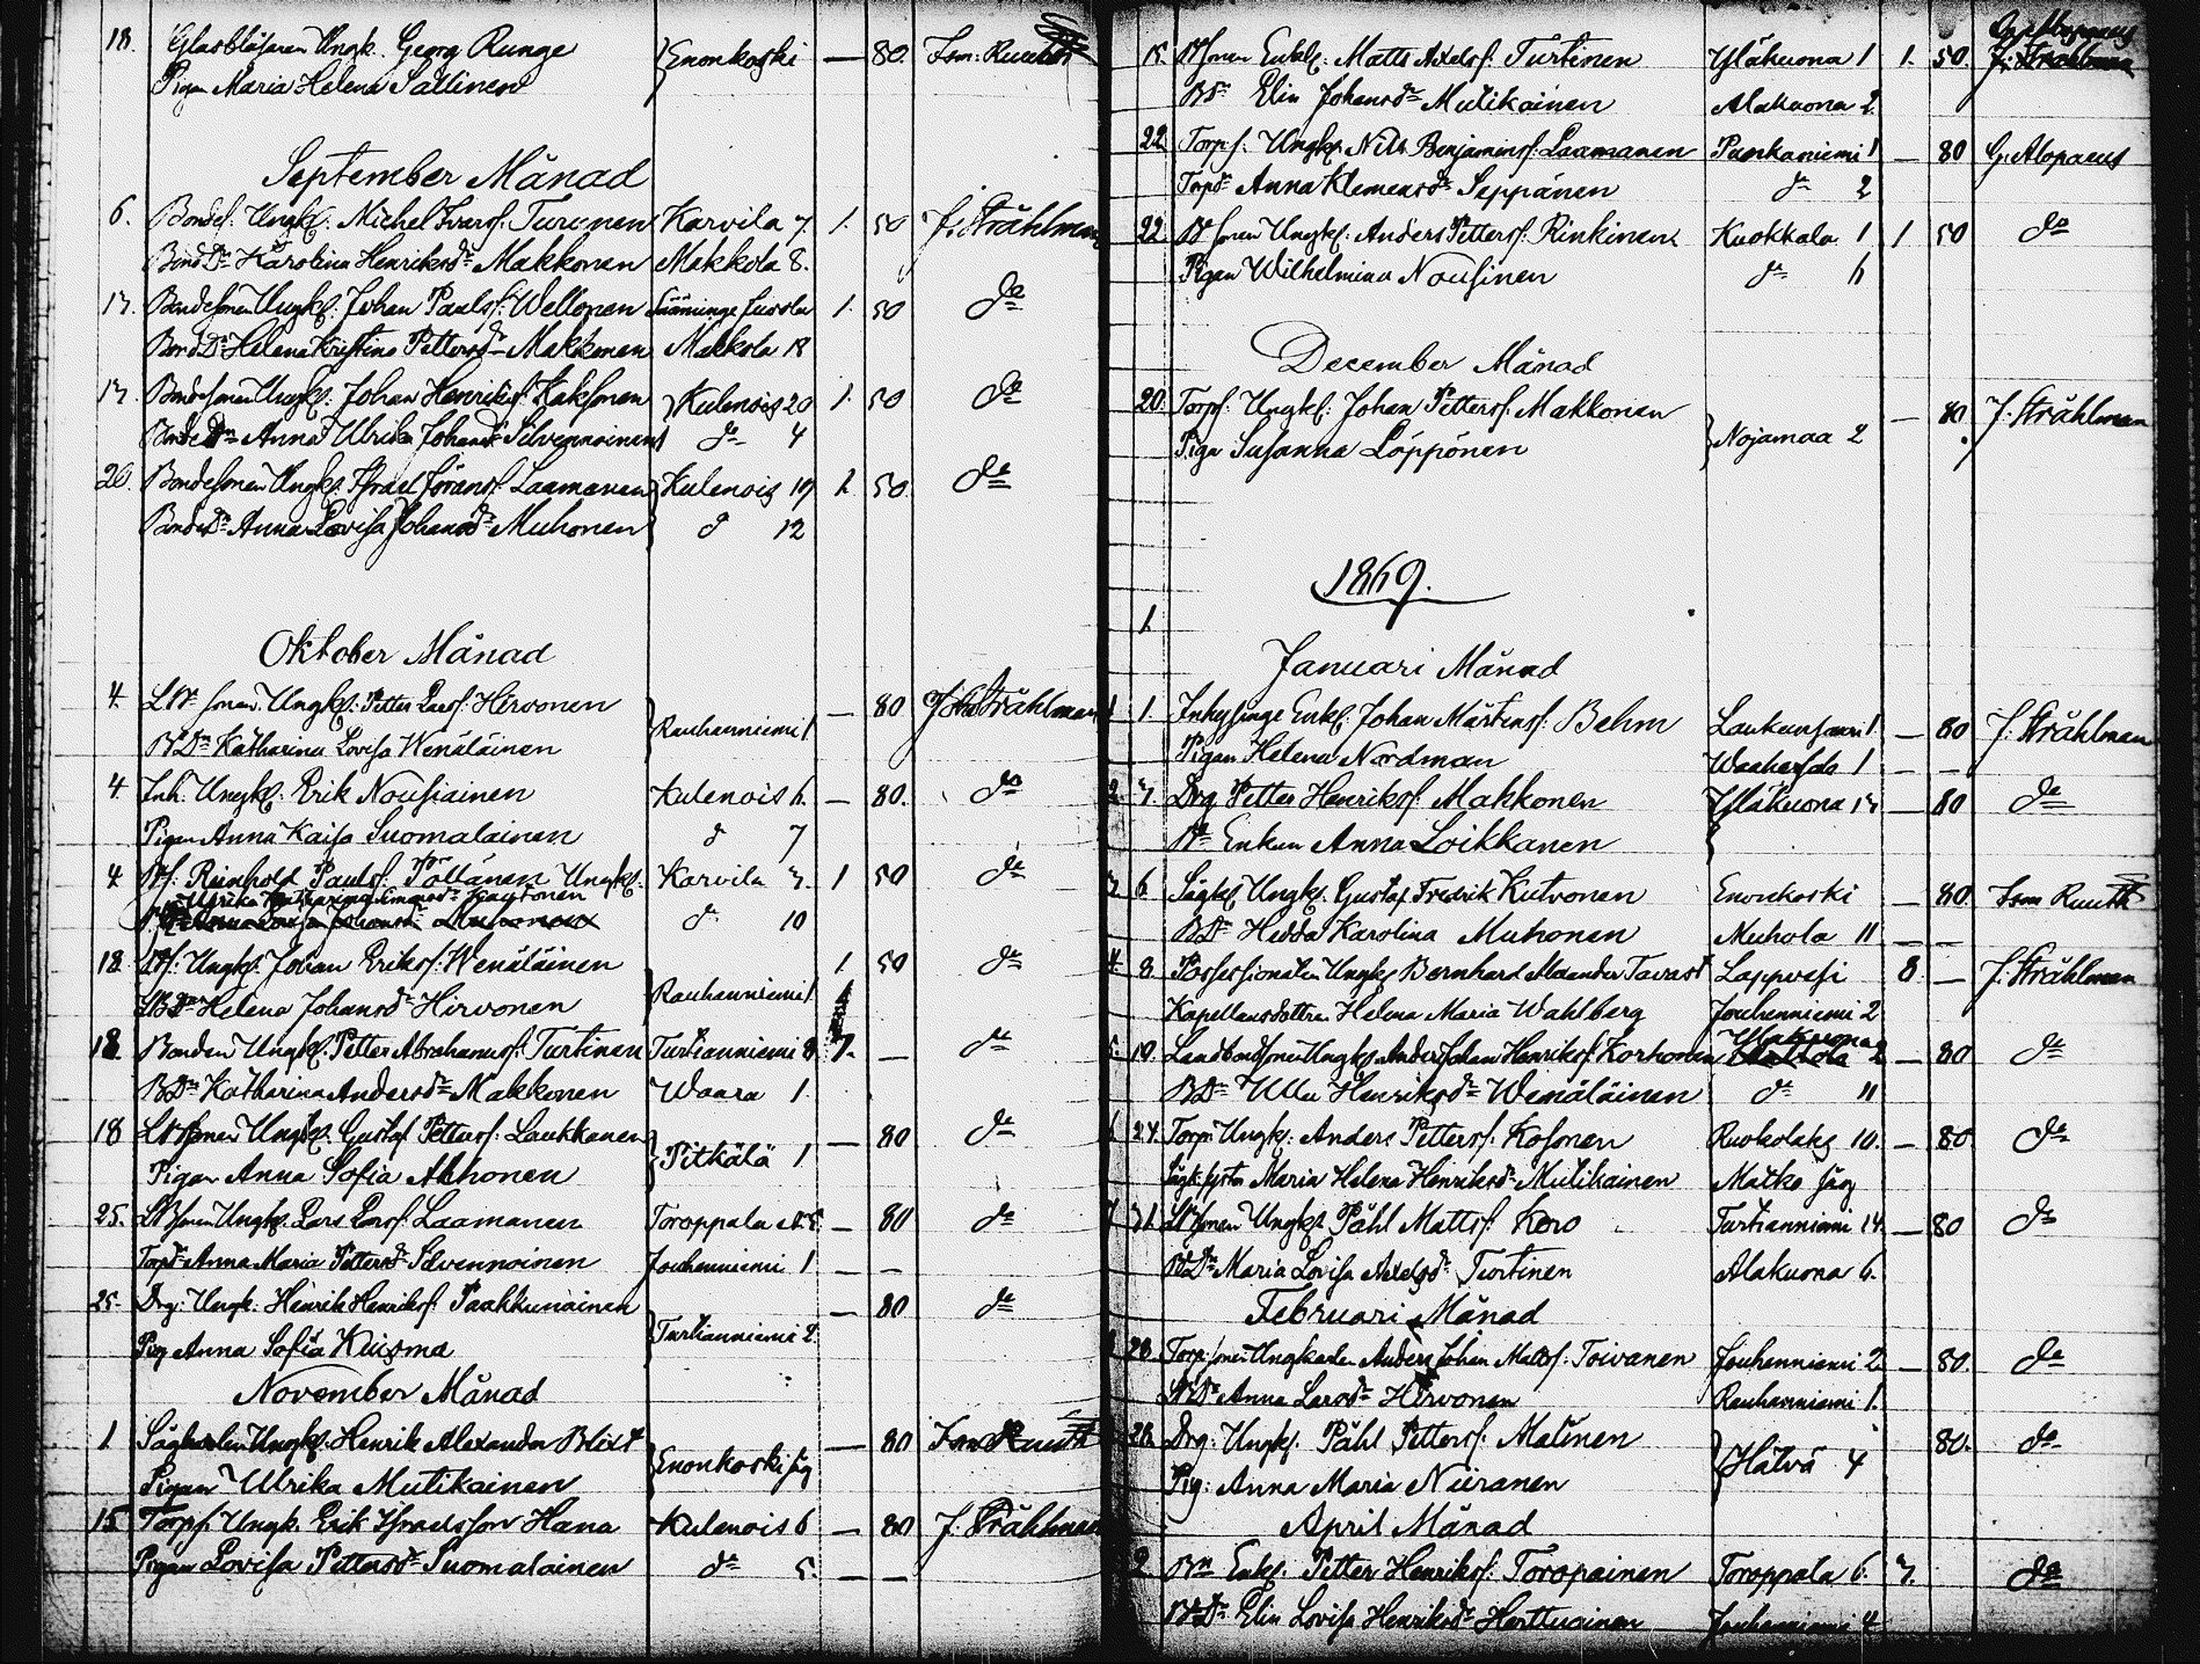 18. Glasblåsaren Ungk. Georg Runge } Enonkoski — 80. Ism: Ruuth
Pigan Maria Helena Sallinen
September Månad
6. Bondes. Ungkl: Michel Ivarss: Turunen Karvila 7. 1. 50 J. Stråhlman
Bond Dr Karolina Henriksdr Makkonen Makkola 8.
13. Bondesonen Ungkl: Johan Paulss: Wellonen Sääminge 1. 50 do
Bond Dr Helena Kristina Pettersdr Makkonen Makkola 18
13. Bondesonen Ungkl: Johan Henrikss: Kaksonen } Kulenois 20 1. 50 do
Bonde Dr Anna Ulrika Johansdr Silvennoinen do 4
20. Bondesonen Ungkl. Israel Göranss. Laamanen } Kulenois 19 1. 50 do
Bonde Dr Anna Lovisa Johansdr Muhonen do 12
Oktober Månad
4. LB sonen Ungkl: Petter Larss: Hirvonen } Rauhanniemi 1. — 80 Joh Stråhlman
B Dr Katharina Lovisa Wenäläinen
4. Inh. Ungkl: Erik Nousiainen Kulenois 6. — 80. do
Pigan Anna Kaisa Suomalainen do 7
4. Bs. Reinhold Paulss: Pöllänen Ungkl: Karvila 3. 1 50 do
Ulrika Katharina do 10
18. Bs. Ungkl. Johan Erikss: Wenäläinen } Rauhanniemi 1. 1 50 do
LB Dr Helena Johansdr Hirvonen
18. Bonden Ungkl: Petter Abrahamss: Turtinen Turtianniemi 8 7. — do
B Dr Katharina Andersdr Makkonen Waara 1.
18 LB sonen Ungkl. Gustaf Petterss: Laukkanen } Pitkälä 1 — 80 do
Pigan Anna Sofia Ahhonen
25. LB sonen Ungkl. Lars Larss: Laamanen Toroppala — 80 do
Torpdr Anna Maria Pettersdr Silvennoinen Jouhenniemi 1 — —
25. Drg: Ungk: Henrik Henrikss: Paahkunainen } Turtianniemi 2. — 80 do
Pig Anna Sofia Kuisma
November Månad
1. Sågkarlen Ungkl. Henrik Alexander Blixt } Enonkoski såg — 80 Ism Ruuth
Pigan Ulrika Mutikainen
15 Torps. Ungk. Erik Israelsson Hana Kulenois 6 — 80 J. Stråhlman
Pigan Lovisa Pettersdr Suomalainen do 5. — —
15. B sonen Enkl: Matts Axelss: Turtinen Yläkuona 1 1. 50. G. Alopaeus
B Dr Elin Johansdr Mutikainen Alakuona 2.
22. Torps. Ungkl. Nils Benjaminss: Laamanen Pankaniemi 1 — 80 G. Alopaeus
Torpdr Anna Klemensdr Seppänen do 2
22. B sonen Ungkl. Anders Petterss: Rinkinen Kuokkala 1 1 50 do
Pigan Wilhelmina Nousinen do 6
December Månad
20. Torps: Ungkl: Johan Petterss: Makkonen } Nojamaa 2 — 80. J. Stråhlman
Piga Susanna Löppönen
1869.
1.
Januari Månad
1 1. Inhysinge Enkl: Johan Mårtenss: Behm Laukansaari 1. — 80 J. Stråhlman
Pigan Helena Nordman Waahersalo 1 — —
2 3. Drg Petter Henrikss: Makkonen } Yläkuona 13 — 80 do
B Enkan Anna Loikkanen
3 6. Sågkl Ungkl. Gustaf Fredrik Kutvonen Enonkoski — 80. Ism Ruuth
B Dr Hedda Karolina Muhonen Muhola 11 — —
4. 8. Possessionaten Ungkl Bernhard Alexander Tavast Lappvesi 8. — J. Stråhlman
Kapellansdottren Helena Maria Wahlberg Jouhenniemi 2
5. 10. Landbondsonen Ungkl. Anders Johan Henrikss: Korhonen Yläkuona 2 — 80 do
B Dr Ulla Henriksdr Wenäläinen do 11
6 24. Torp: Ungkl: Anders Petterss: Kosonen Ruokolaks 10. — 80 do
Sågk. syster Maria Helena Henriksdr Mutikainen Matko såg
7 31. LB sonen Ungkl Påhl Mattss: Koro Turtianniemi 14. — 80 do
B Dr Maria Lovisa Axelsdr Turtinen Alakuona 6.
Februari Månad
28. Torp: sonen Ungkarlen Anders Johan Mattss: Toivanen Jouhenniemi 2 — 80. do
LB Dr Anna Larsdr Hirvonen Rauhanniemi 1.
28. Drg: Ungkl. Påhl Petterss: Malinen } Hälvä 4 80. do
Pig: Anna Maria Niiranen
April Månad
2. Bn Enkl. Petter Henrikss: Toropainen Toroppala 6. 3. do
B Dr Elin Lovisa Henriksdr Herttuainen Jouhenniemi 4